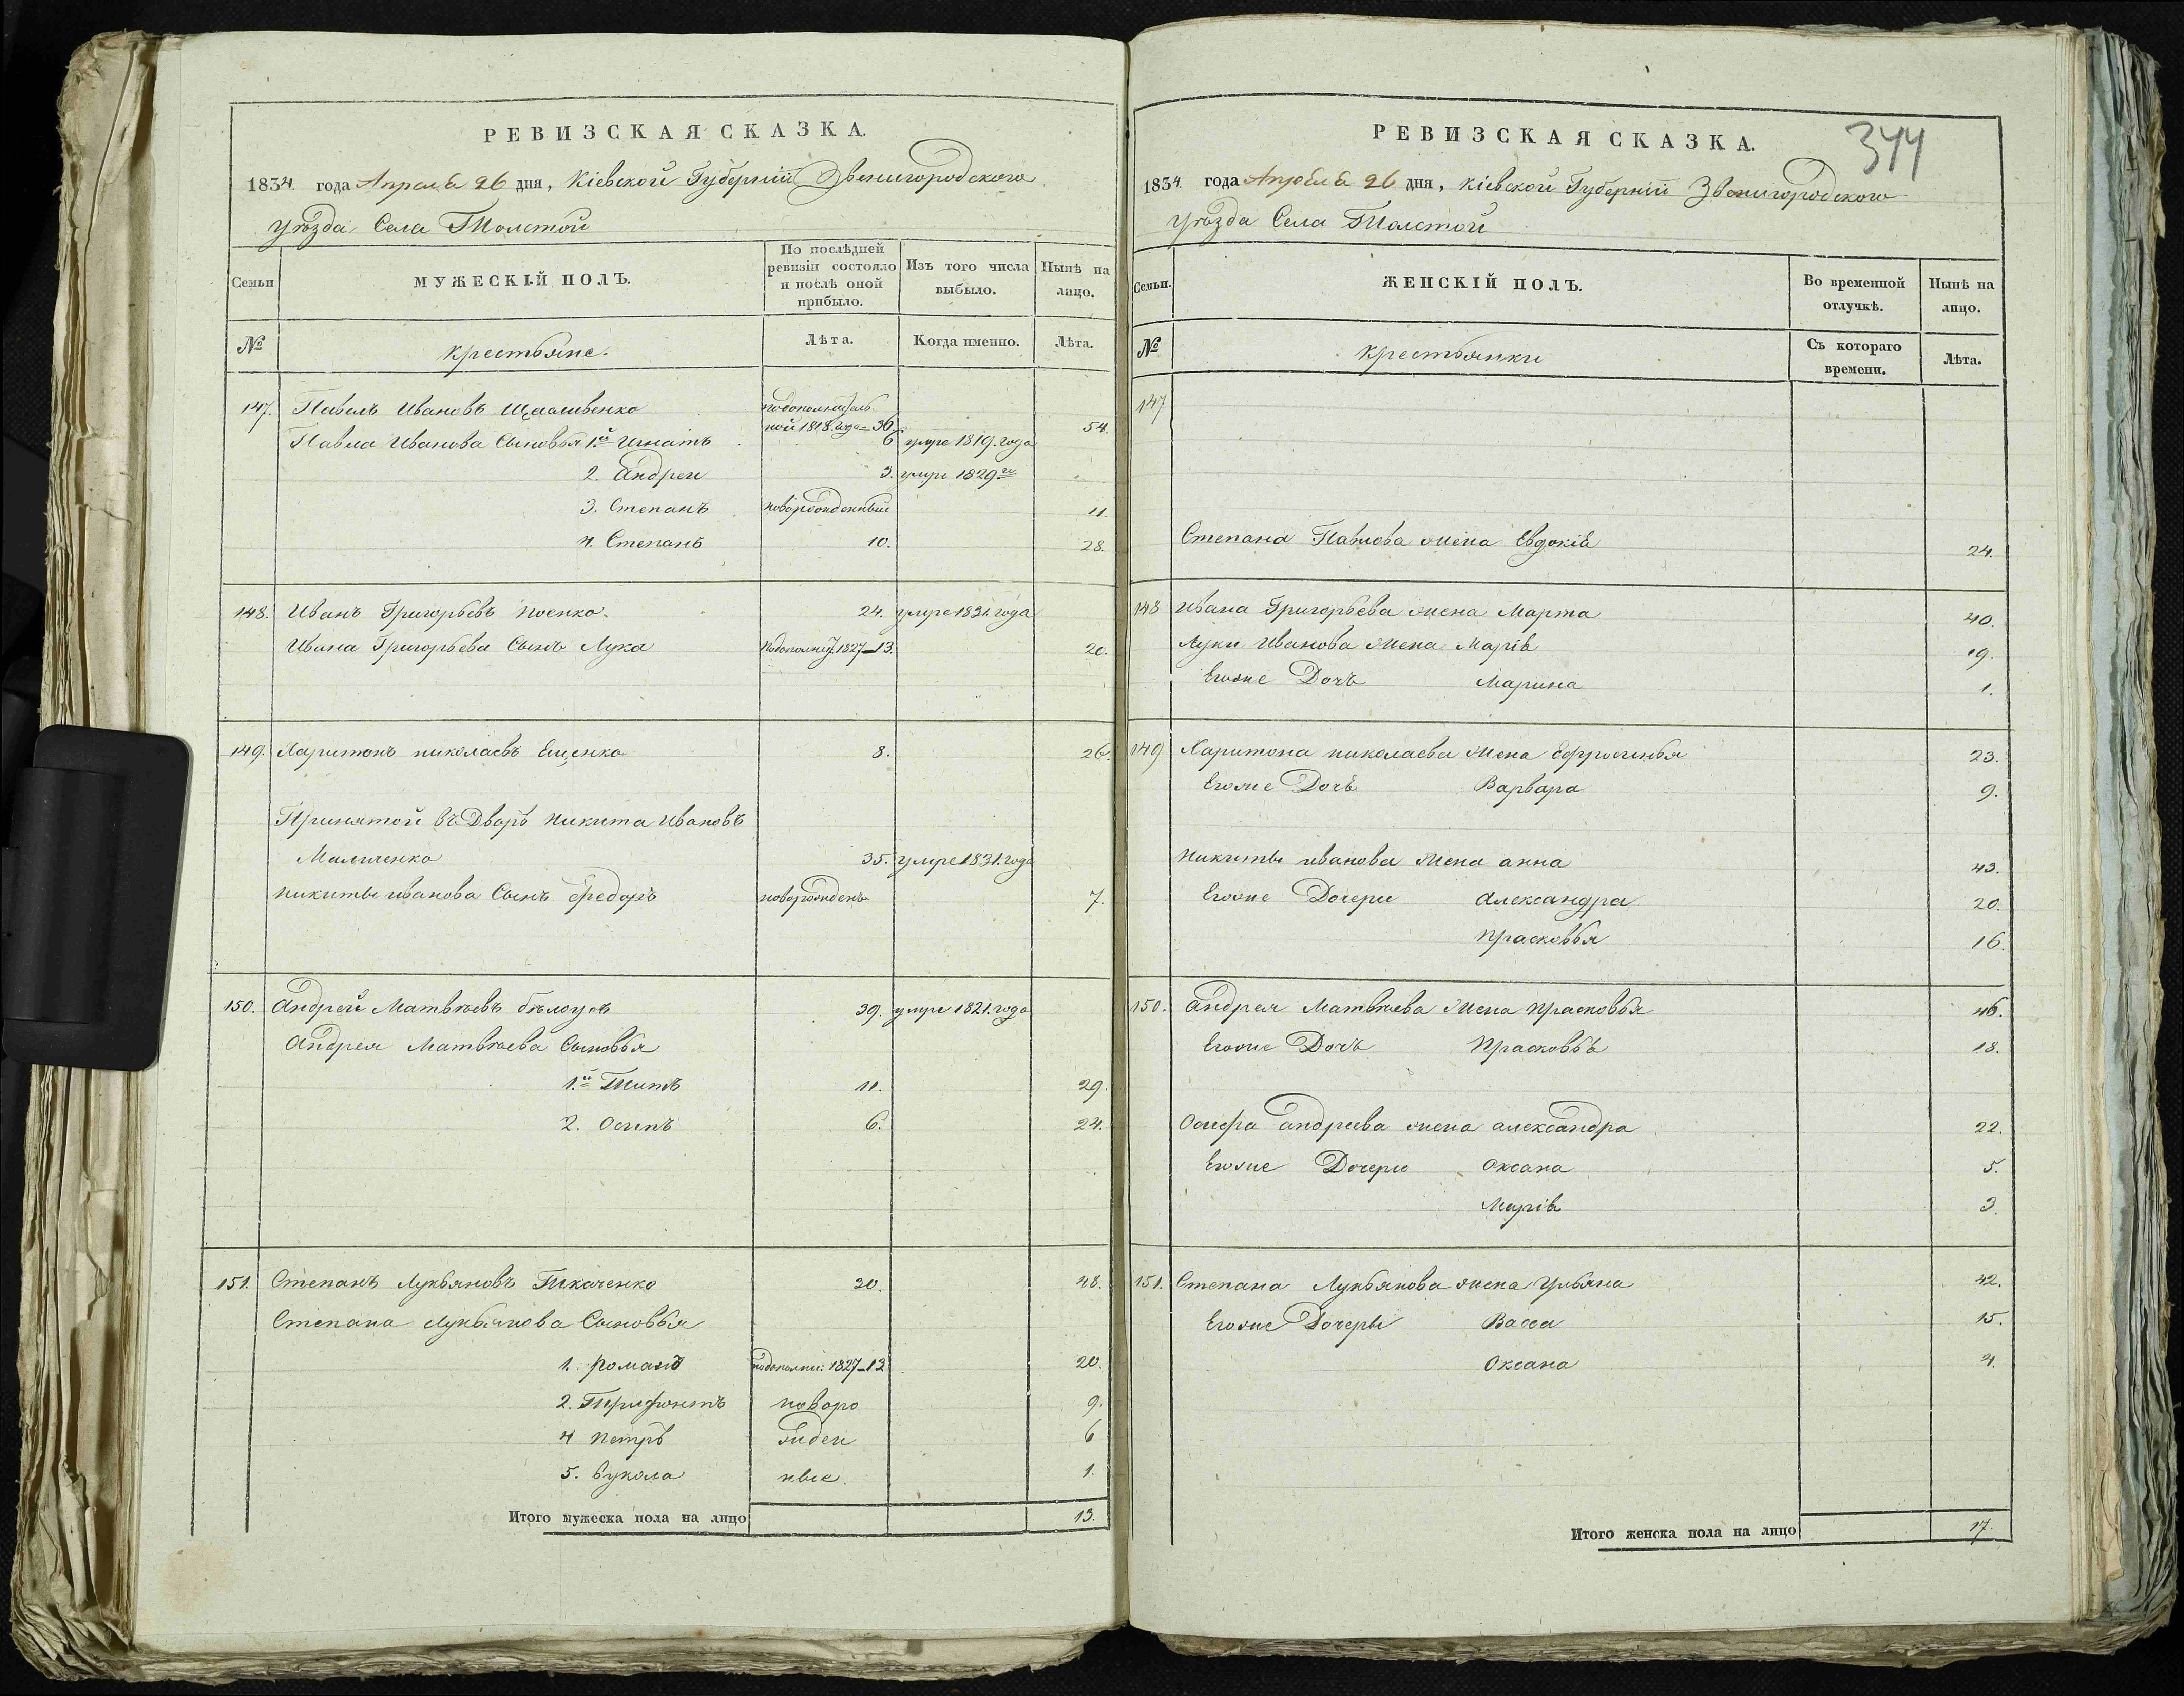 РЕВИЗСКАЯ СКАЗКА.
1834. года Апреля 26 дня, Кіевской Губерніи Звенигородского
уѣзда Села Толстой
Семьи
МУЖЕСКІЙ ПОЛЪ.
По послѣдней ревизіи состояло и послѣ оной прибыло.
Изъ того числа выбыло.
Нынѣ на лицо.
№
крестьяне.
Лѣта.
Когда именно.
Лѣта.
147. Павелъ Ивановъ
ной 1818. года = 36. 54.
Павла Иванова Сыновья 1й Игнатъ 6 умре 1819. года
2. Андрей 3. умре 1829го
3. Степанъ новорожденный 11.
4. Степанъ 10. 28.
148. Иванъ Григорьевъ 24. умре 1831. года
Ивана Григорьева Сынъ Лука 1827–13. 20.
149. Харитонъ николаевъ Ещенко 8. 26.
Принятой въ Дворъ Никита Ивановъ
Маличенко 35. умре 1831. года
никиты иванова Сынъ Федоръ новорожденъ 7.
150. Андрей Матвѣевъ бѣлоусъ 39. умре 1821. года
Андрея Матвѣева Сыновья
1й Титъ 11. 29.
2. Осипъ 6. 24.
151. Степанъ Лукьяновъ Ткаченко 30. 48.
Степана Лукьянова Сыновья
1. романъ подополни: 1827–13 20.
2. Трифонтъ новоро 9.
4 петръ жден 6
5. Вукола ные. 1.
Итого мужеска пола на лицо 13.
344
РЕВИЗСКАЯ СКАЗКА.
1834. года Апреля 26 дня, Кіевской Губерніи Звенигородского
уѣзда Села Толстой
Семьи.
ЖЕНСКІЙ ПОЛЪ.
Во временной отлучкѣ.
Нынѣ на лицо.
№
крестьянки
Съ котораго времени.
Лѣта.
147
Степана Павлова жена Евдокія 24.
148 Ивана Григорьева жена Марта 40.
Луки Иванова жена Марія 19.
Егоже Дочь Марина 1.
149 Харитона николаева жена Ефросинья 23.
Егоже Дочь Варвара 9.
Никиты иванова жена анна 43.
Егоже Дочери Александра 20.
Прасковья 16.
150. Андрея Матвѣева жена прасковья 46.
Егоже Дочь Прасковья 18.
Осифа андреева жена александра 22.
Егоже Дочери Оксана 5.
Марія 3.
151. Степана Лукьянова жена Ульяна 42.
Егоже Дочеры Васса 15.
Оксана 4.
Итого женска пола на лицо 17.